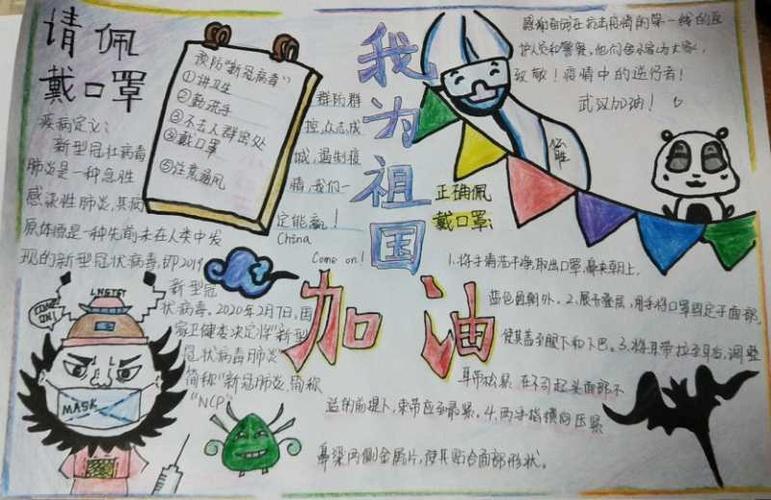 请佩
戴口罩
疾病定义：
新型冠状病毒
肺炎是一种急性
感染性肺炎，其病
原体是一种先前未在人类中发
现的新型冠状病毒，即2019
新型冠
状病毒，2020年2月7日，国
家卫健委决定将"新型
冠状病毒肺炎"
简称"新冠肺炎，简称
"NCP"
预防"新冠病毒"
①讲卫生
②勤洗手
③不去人群密处
④戴口罩
⑤注意通风
群防群
控，众志成
城，遏制疫
情，我们一
定能赢！
China
Come on！
我为祖国
加油
感谢奋战在抗击疫情的第一线的医
护人员和警察，他们舍小家为大家，
致敬！疫情中的逆行者！
武汉加油！
必胜
正确佩
戴口罩：
1.将手清洗干净，取出口罩，鼻夹朝上，
蓝色面朝外。2.展开叠层，用手将口罩固定于面部，
使其盖至眼下和下巴。3.将耳带拉至耳后，调整
耳带松紧，在不引起头面部不
适的前提下，束带应至最紧。4.两手指横向压紧
鼻梁两侧金属片，使其贴合面部形状。
COME
ON!
MASK